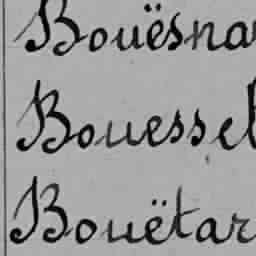 Bouësna
Bouessel
Bouëtar